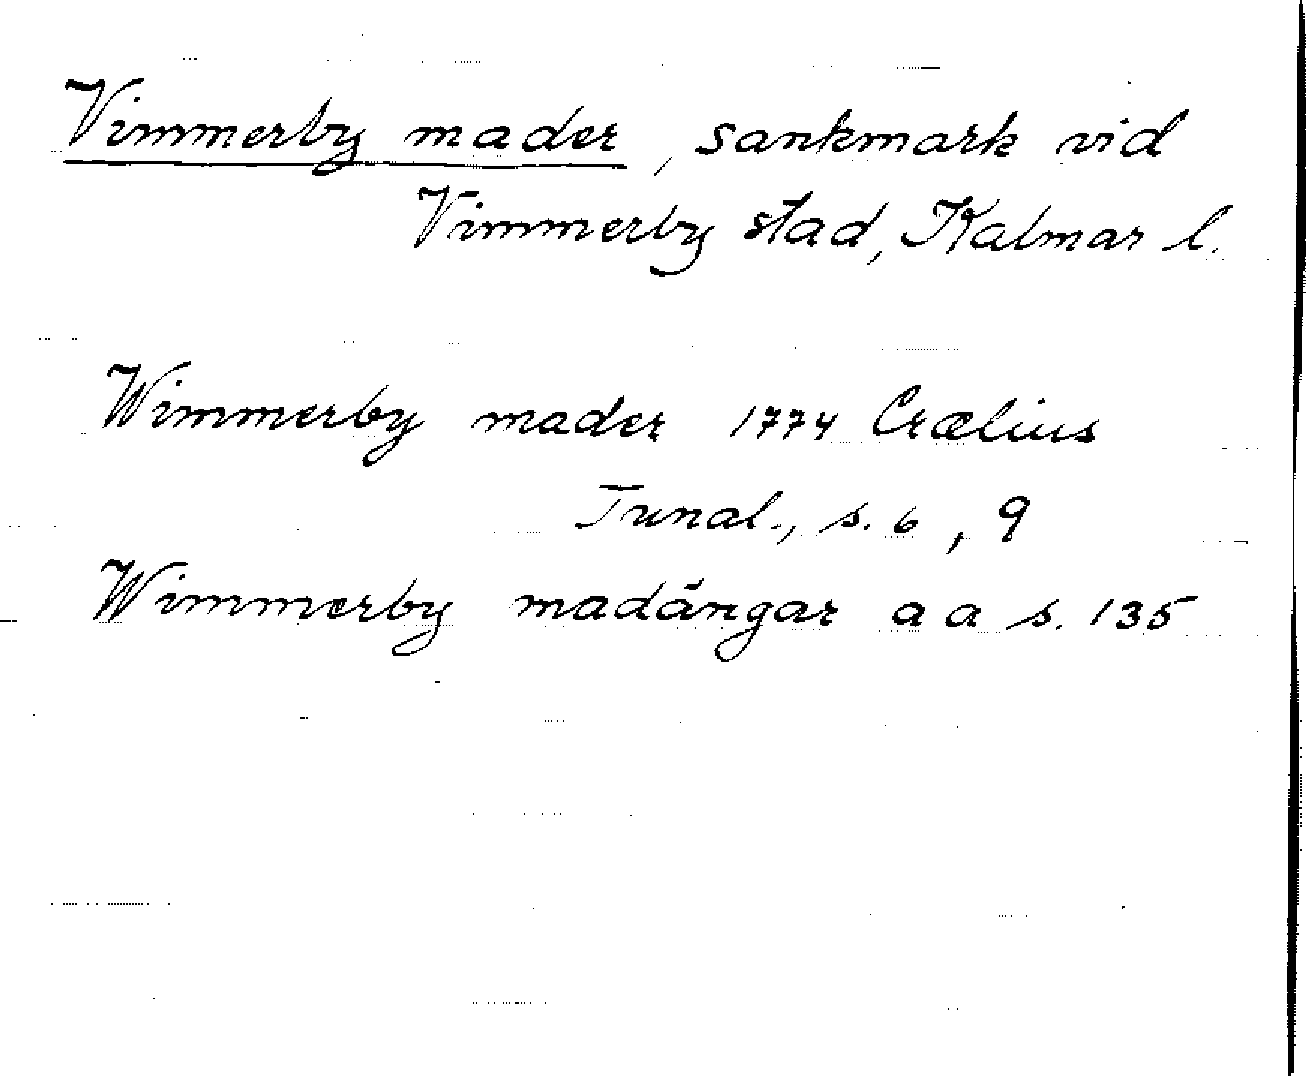 Vimmerby mader, sankmark vid
Vimmerby stad, Kalmar l.
Wimmerby mader 1774 Crælius
Tunal., s. 6, 9
Wimmerby madängar a a s. 135